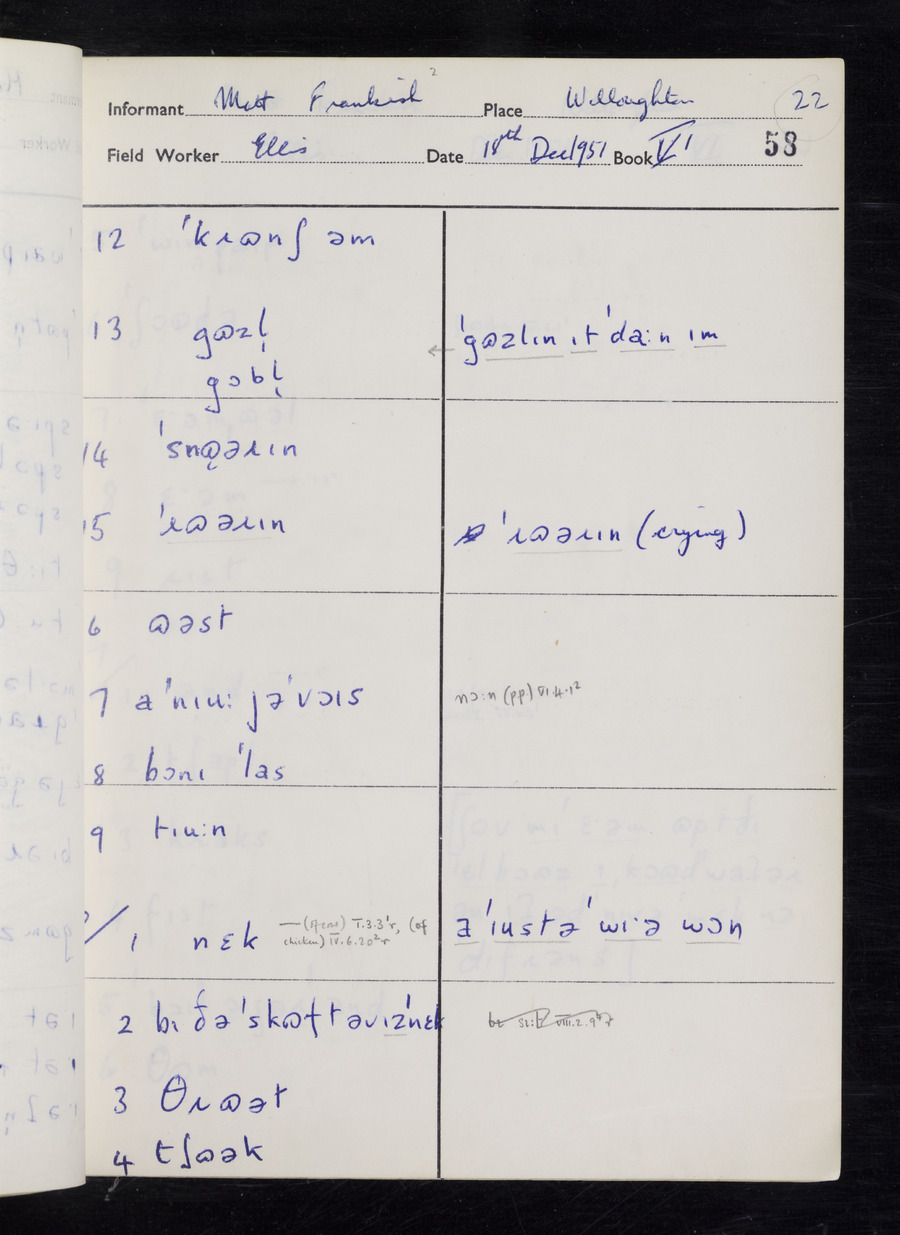 Informant Matt Frankish Place Willoughton 22
Field Worker Ellis Date 18th Dec 1951 Book VI 58
12 ˈkɹɷnʃ əm
13 gɷzl̩ ˈgɷzlɪn ɪt ˈda:n ɪm
gɔbl̩
14 ˈsnɷ̨əɹɪn
15 ˈɹɷəɹɪn ˈɹɷəɹɪn (crying)
6 ɷəst
7 a ˈnɪu: jə ˈvɔɪs nɔ:n (pp) VI.4.12
8 bɔnɪ ˈlas
9 tɪu:n
1 nɛk — (of ens) I.3.3'r, (of
chicken) IV.6.20²r a ˈɪustə ˈwɪə wɔn
2 bɪ ðə ˈskɷft əv ɪz ˈnɛk VIII.2.9
3 θɹɷət
4 tʃɷək